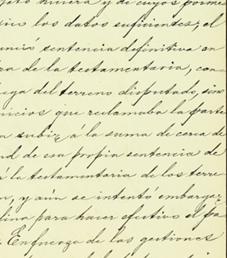 jeto minera y de cuyos porme
sico los datos suficientes; el
unció sentencia definitiva en
ra de la testamentaria, con-
ega del terreno disputado, sin
uicios que reclamaba la parte
n subir á la suma de cerca de
ud de esa propia sentencia se
á la testamentaria de los terre
n, y aún se intentó embarg
lina para hacer efectivo el pa
. En fuerza de las gestiones